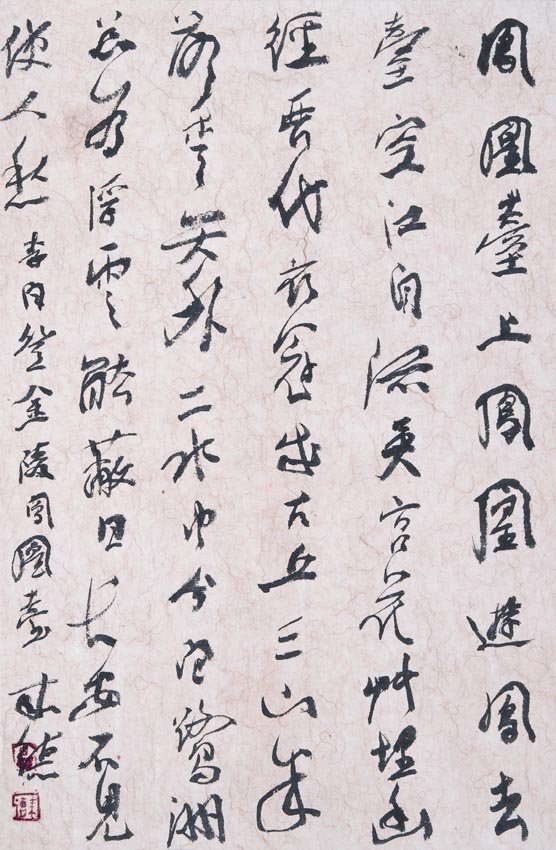 鳳凰臺上鳳凰遊鳳去
臺空江自流吳宮花艸埋幽
徑晉代衣冠成古丘三山半
落青天外二水中分白鷺洲
總為浮雲能蔽日長安不見
使人愁 李白登金陵鳳凰臺